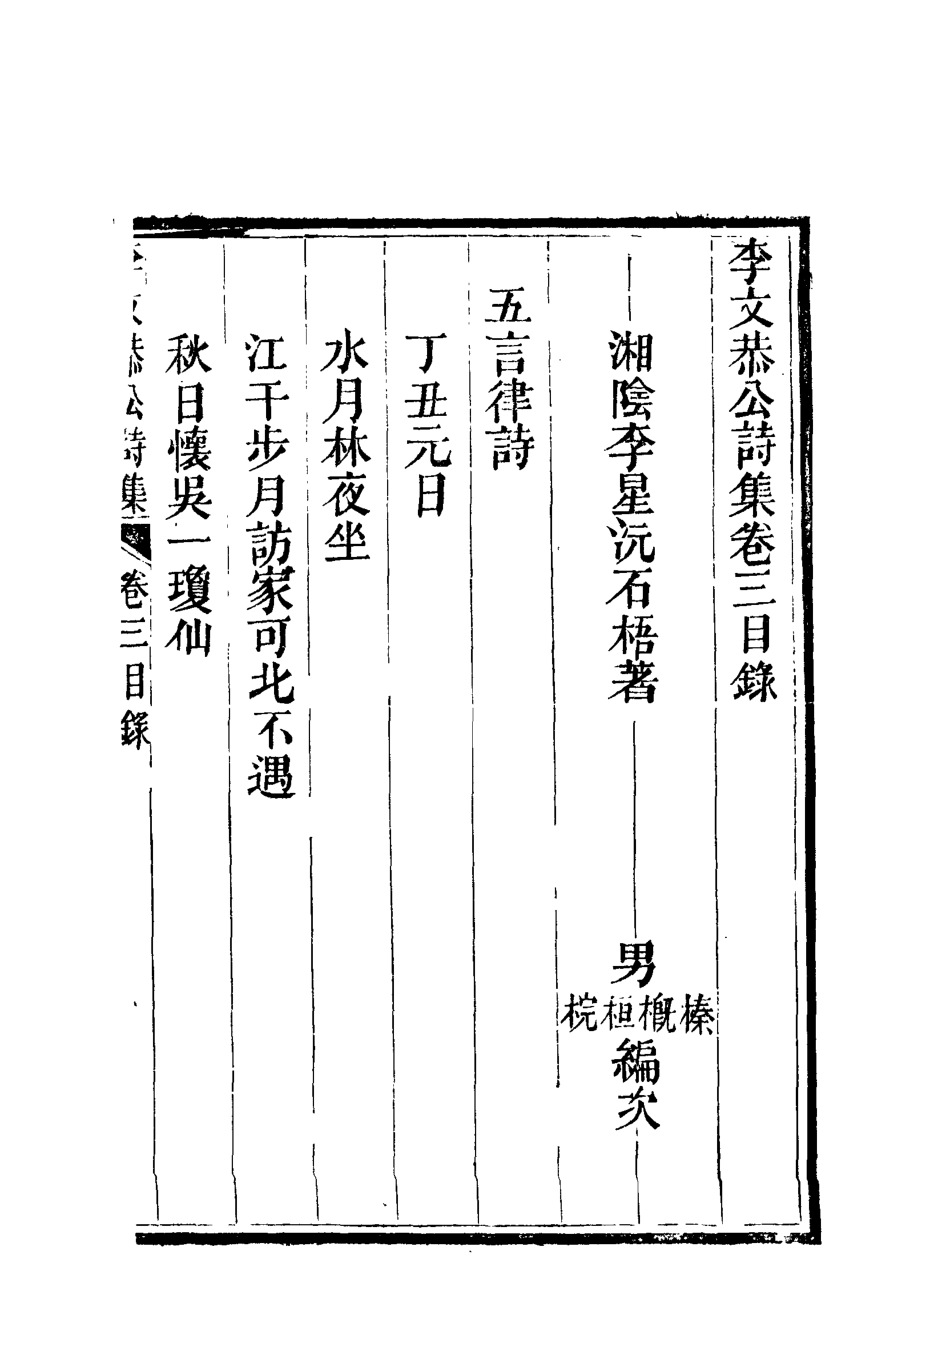 李文恭公詩集卷三目錄
湘陰李星沅石梧著
男
榛概桓梡
編次
五言律詩
丁丑元日
水月林夜坐
江干步月訪家可北不遇
秋日懷吳一瓊仙
李文恭公詩集
卷三目錄